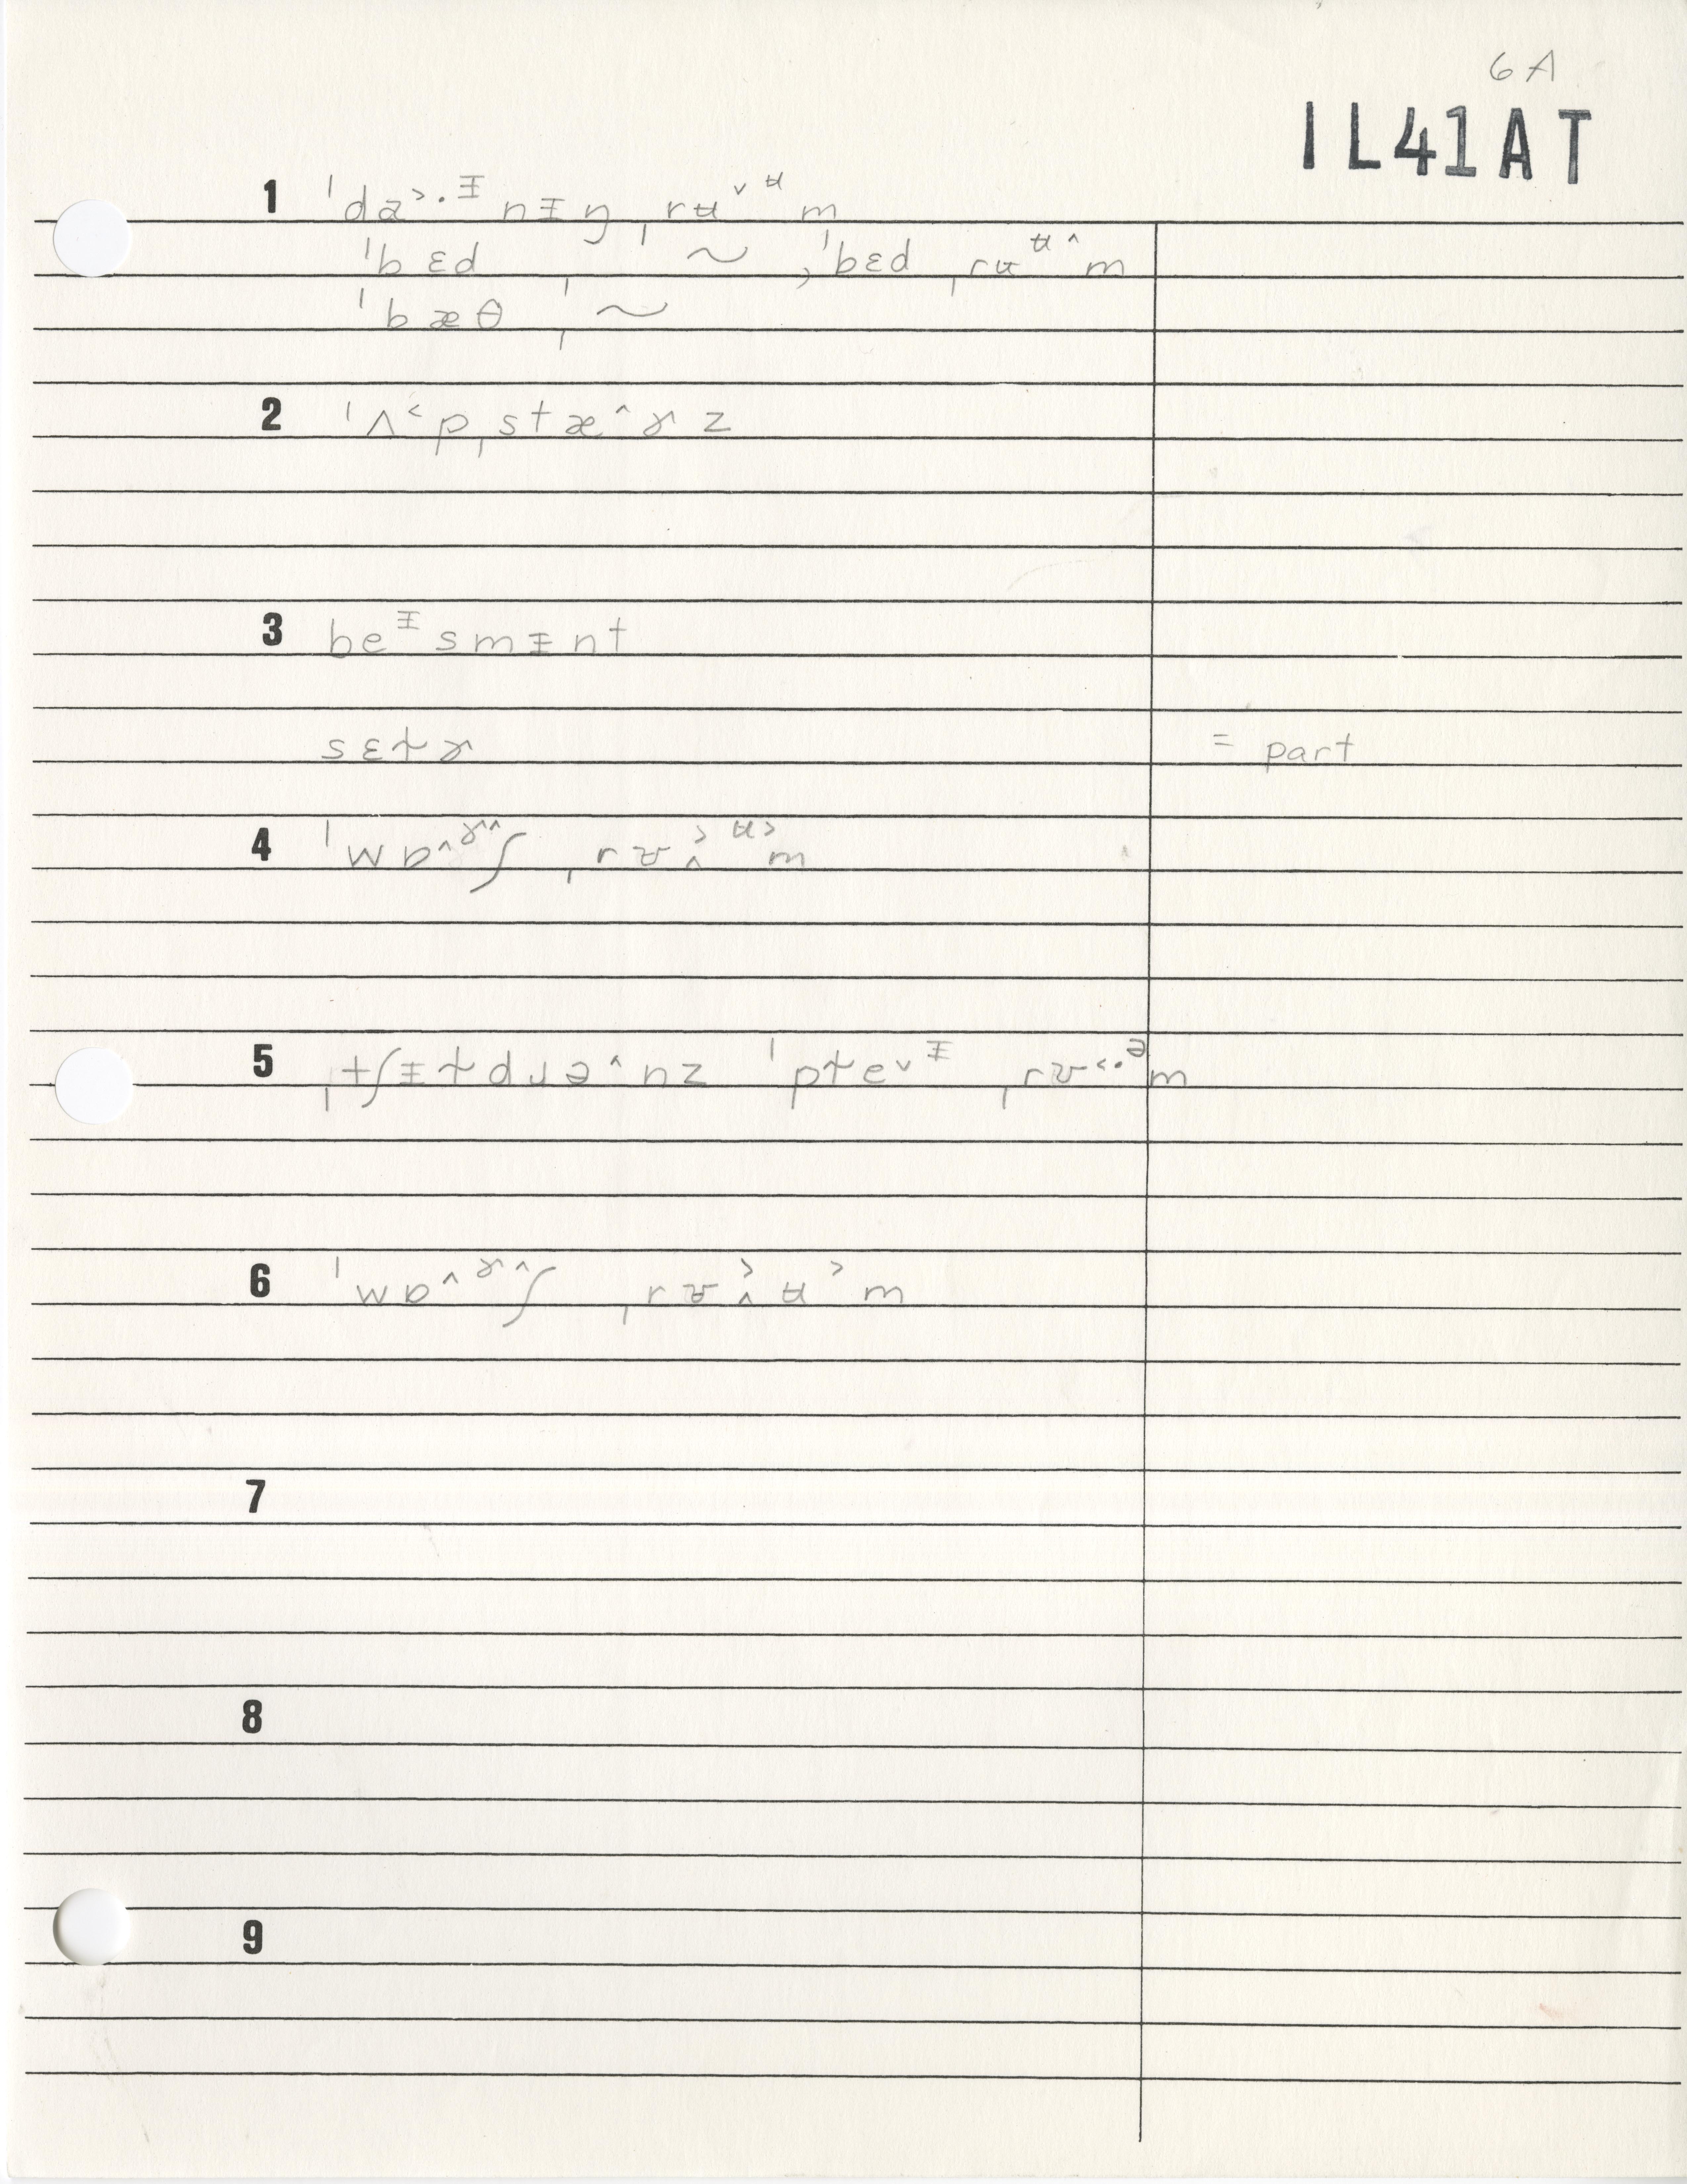 6A
IL41AT
1 ˈda˃·ᵻnᵻŋ ˌrʉ˅ᶶm
ˈbɛd ˌ~ , ˈbɛd ˌrʉᶶ˄m
ˈbæθ ˌ~
2 ˈʌ˂pˌstæ˄ɚz
3 beᵻsmᵻnt
sɛt̬ɚ = part
4 ˈwɒ˄ɚ˄ʃ ˌrʊ˄˃ʉ˃m
5 ˌtʃᵻɫdɹə˄nz ˈpɫe˅ᵻ ˌrʊ˂·ᵊm
6 ˈwɒ˄ɚ˄ʃ ˌrʊ˄˃ʉ˃m
7
8
9